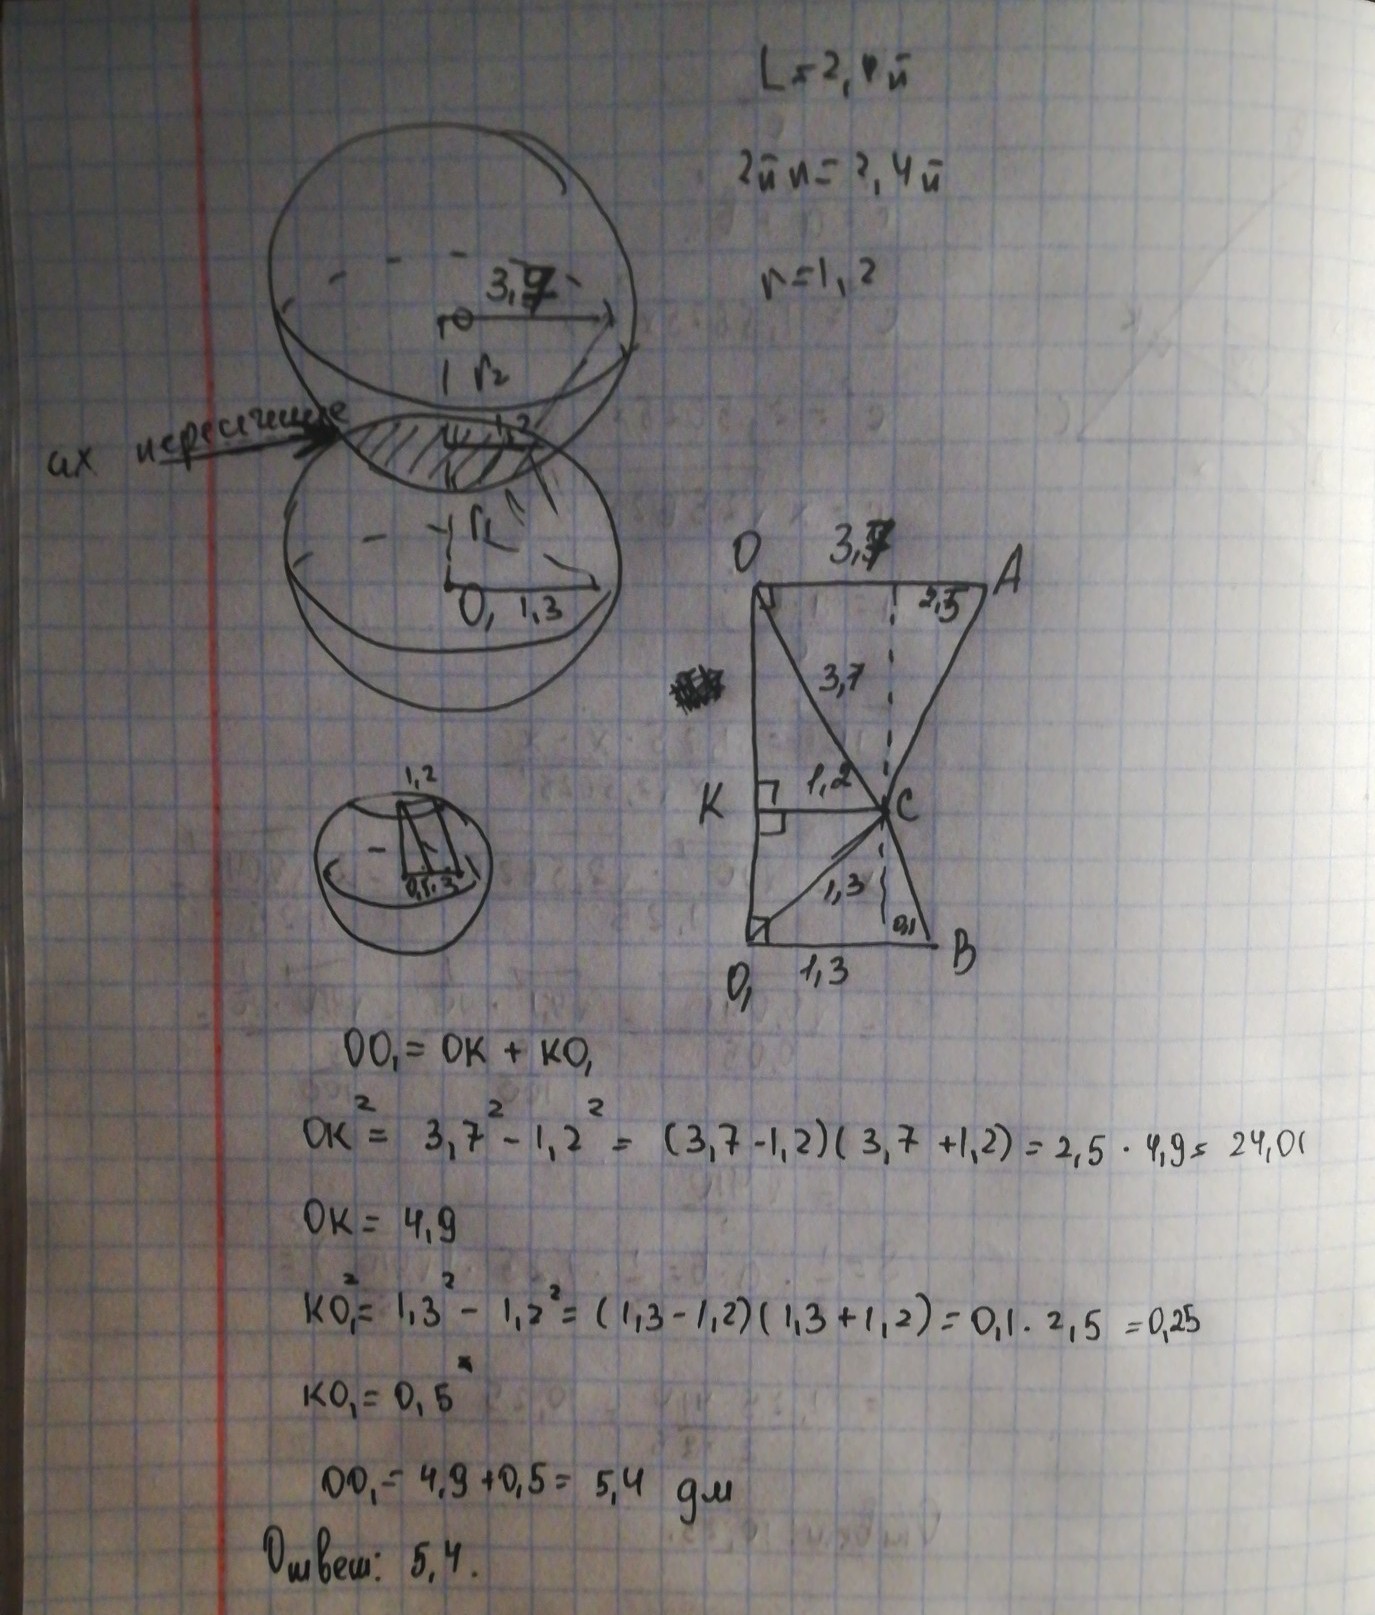 L = 2,4π
2πr = 2,4π
r = 1,2
3,7
O
r₂
их пересечение
1,2
r₁
O₁ 1,3
O 3,7 A
2,5
3,7
K 1,2 C
1,3
0,1
O₁ 1,3 B
1,2
OO₁ = OK + KO₁
OK² = 3,7² - 1,2² = (3,7 - 1,2)(3,7 + 1,2) = 2,5 · 4,9 = 24,01
OK = 4,9
KO₁² = 1,3² - 1,2² = (1,3 - 1,2)(1,3 + 1,2) = 0,1 · 2,5 = 0,25
KO₁ = 0,5
OO₁ = 4,9 + 0,5 = 5,4 дм
Ответ: 5,4.